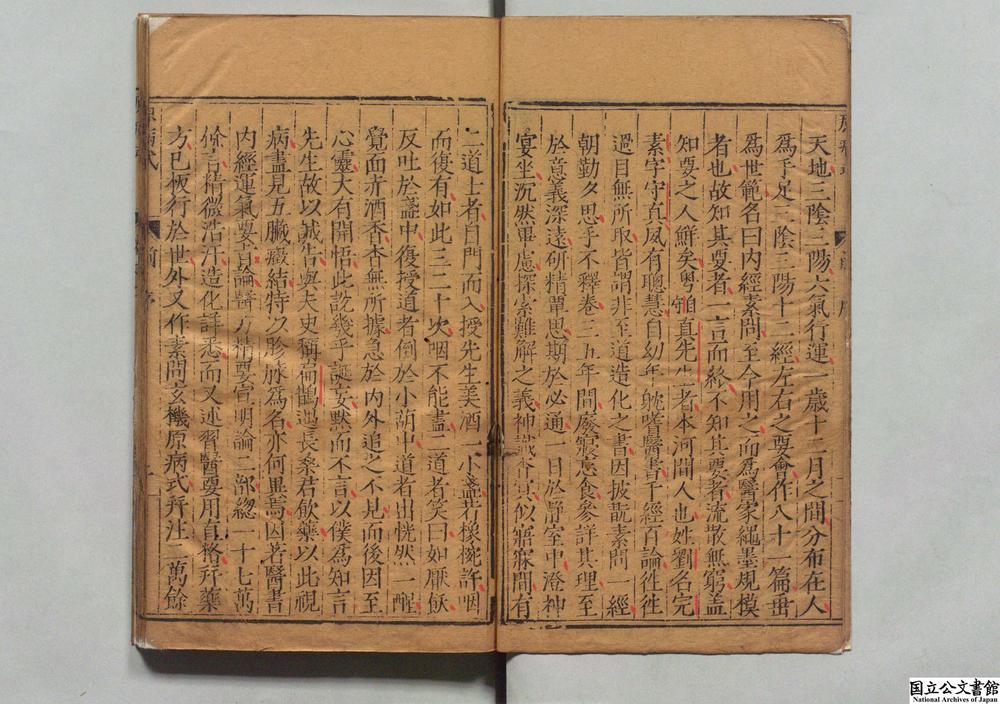 天地三陰三陽六氣行運一歲十二月之間分布在人
爲手足三陰三陽十二經左右之要會作八十一篇垂
爲世範名曰内經素問至今用之而爲醫家繩墨規模
者也故知其要者一言而終不知其要者流散無窮蓋
知要之人鮮矣粤守直先生者本河間人也姓劉名完
素字守直夙有聰慧自幼年躭嗜醫書千經百論徃徃
過目無所取皆謂非至道造化之書因披翫素問一經
朝勤夕思手不釋卷三五年間廢寢忘食參詳其理至
於意義深遠研精覃思期於必通一日於靜室中澄神
宴坐沉然畢慮探索難解之義神識杳冥似寤寐間有
二道士者自門而入授先生美酒一小盞若椽椀許咽
而復有如此三二十次咽不能盡二道者笑曰如厭飫
反吐於盞中復授道者倒於小葫中道者出恍然一醒
覺面赤酒香杳無所據急於内外追之不見而後因至
心靈大有開悟此說幾乎誕妄默而不言以僕爲知言
先生故以誠告與夫史稱扁鵲遇長桑君飲藥以此視
病盡見五臟癥結特以胗脉爲名亦何異焉因著醫書
内經運氣要旨論醫方精要宣明論二部緫一十七萬
餘言精微浩汗造化詳悉而又述習醫要用直格幷藥
方已板行於世外又作素問玄機原病式幷注二萬餘
原病式
序
国立公文書館
National Archives of Japan